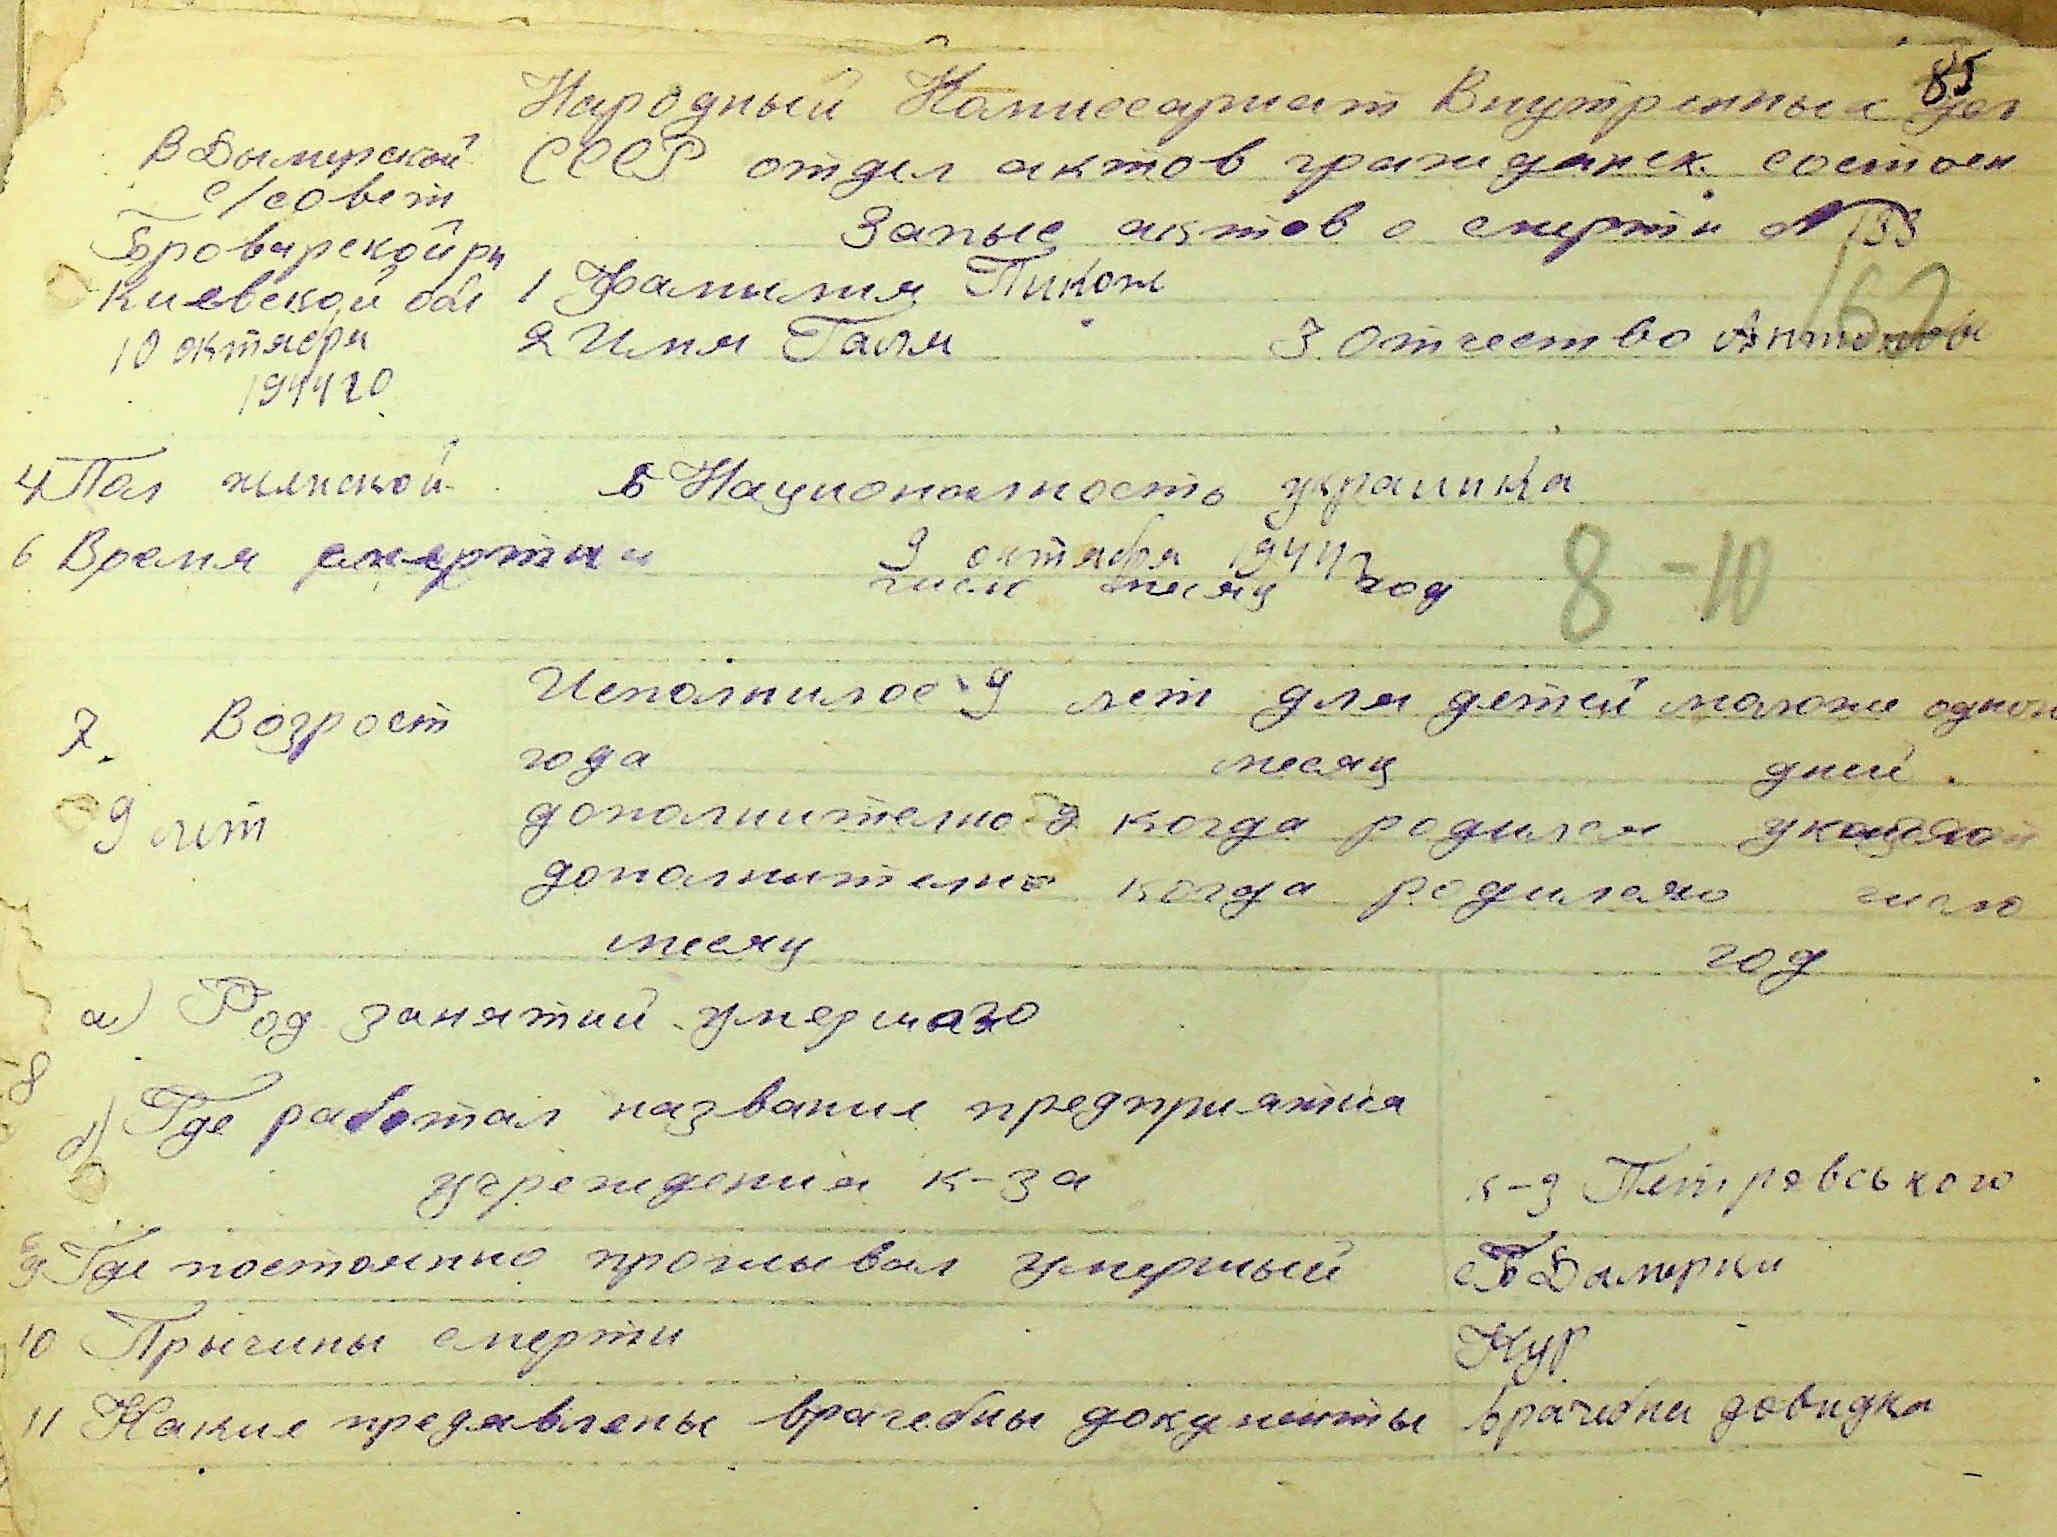 85
Народный Комиссариат Внутренных дел
СССР отдел актов гражданск. состоен
Запыс актов о смерти № 133
162
В Дымерской
с/совет
Броварской рн
Киевской обл
10 октября
1944 го
1 Фамилия Пикож
2 Имя Галя 3. Отчество Антоновы
4 Пол женской 5 Национолность украинка
6 Время смерти 9 октября 1944 г
число месяц год
8-10
7. Возрост
9 лет
Исполнилос 9 лет для детей моложе однои
года месяц дней.
дополнително когда родился
дополнително когда родилсяо число
месяц год
8
а) Род занятий умершаго
б) Где работал название предприятия
учреждения к-за к-з Петровського
9 Где постоянно прожывал умершый с Б Дымерки
10 Прычины смерти Кур
11 Какие предявлены врачебны документы врачебны довидка